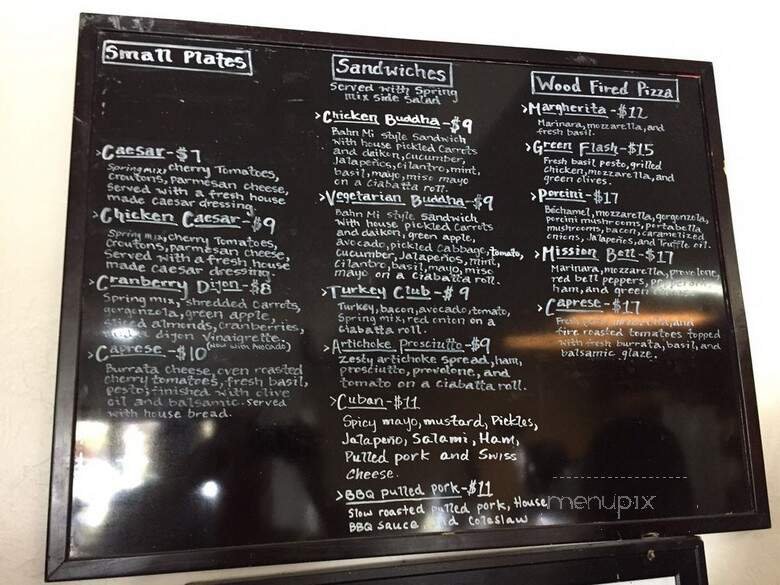 Small Plates
>Caesar-$7
Spring mix, cherry Tomatoes,
croutons, parmesan cheese,
served with a fresh house
made caesar dressing.
>Chicken Caesar-$9
Spring mix, cherry Tomatoes,
Croutons, parmesan cheese,
Served with a fresh house
made caesar dressing.
>Cranberry Dijon-$8
Spring mix, shredded carrots,
gorgonzola, green apple,
almonds, cranberries,
dijon vinaigrette
(Now with Avocado)
>Caprese-$10
Burrata cheese, oven roasted
cherry tomatoes, fresh basil,
pesto, finished with olive
oil and balsamic. served
with house bread.
Sandwiches
Served with Spring
mix side Salad
>Chicken Buddha-$9
Bahn Mi style Sandwich
with house pickled Carrots
and daikon, cucumber,
jalapeños, cilantro, mint,
basil, mayo, miso mayo
on a Ciabatta roll.
>Vegetarian Buddha-$9
Bahn Mi style sandwich
with house pickled Carrots
and daikon, green apple,
avocado, pickled Cabbage, tomato,
cucumber, Jalapeños, mint,
Cilantro, basil, mayo, miso
mayo on a Ciabatta roll.
>Turkey Club-$9
Turkey, bacon, avocado, tomato,
Spring mix, red onion on a
ciabatta roll.
>Artichoke Prosciutto-$9
Zesty artichoke spread, ham,
prosciutto, provolone, and
tomato on a ciabatta roll.
>Cuban-$11
Spicy mayo, mustard, Pickles,
Jalapeño, Salami, Ham,
Pulled pork and Swiss
Cheese.
>BBQ pulled pork-$11
Slow roasted pulled pork, House
BBQ sauce and Coleslaw
Wood Fired Pizza
>Margherita-$12
Marinara, mozzarella, and
fresh basil.
>Green Flash-$15
Fresh basil pesto, grilled
chicken, mozzarella, and
green olives.
>Porcini-$17
Béchamel, mozzarella, gorgonzola,
porcini mushrooms, portabella
mushrooms, bacon, caramelized
onions, Jalapeños, and Truffle oil.
>Mission Bell-$17
Marinara, mozzarella, provolone,
red bell peppers, pepperoni,
ham, and green
>Caprese-$17
and
fire roasted tomatoes topped
with fresh burrata, basil, and
balsamic glaze.
menupix